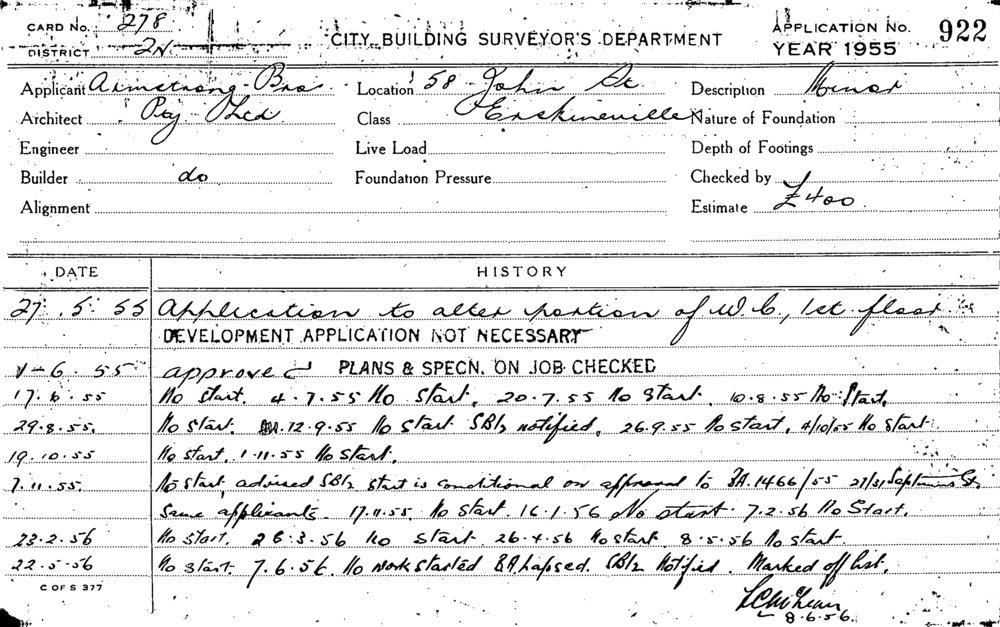 CARD No. 278
DISTRICT 2N.
CITY BUILDING SURVEYOR'S DEPARTMENT
APPLICATION No. 922
YEAR 1955
Applicant Armstrong Bros. Location 58 John St Description Minor
Architect Pty Ltd Class Erskineville Nature of Foundation
Engineer Live Load Depth of Footings
Builder do Foundation Pressure Checked by
Alignment Estimate £400
DATE HISTORY
27.5.55 Application to alter portion of W.C, 1st floor
DEVELOPMENT APPLICATION NOT NECESSARY
1-6.55 approved PLANS & SPECN. ON JOB CHECKED
17.6.55 No start. 4.7.55 No start, 20.7.55 No start. 10.8.55 No Start.
29.8.55. No start. 12.9.55 No start SBI notified. 26.9.55 No start, 4/10/55 No start
19.10.55 No start. 1.11.55 No start.
7.11.55. No start, advised SBI start is conditional on approval to BA.1466/55 St,
same applicants. 17.11.55. No start. 16.1.56 No start 7.2.56 No Start.
23.2.56 No start. 26.3.56 no start 26.4.56 No start 8.5.56 No start.
22.5.56 No start. 7.6.56. No work started BA lapsed. SBI Notified. Marked off list.
C OF S 377
8.6.56.